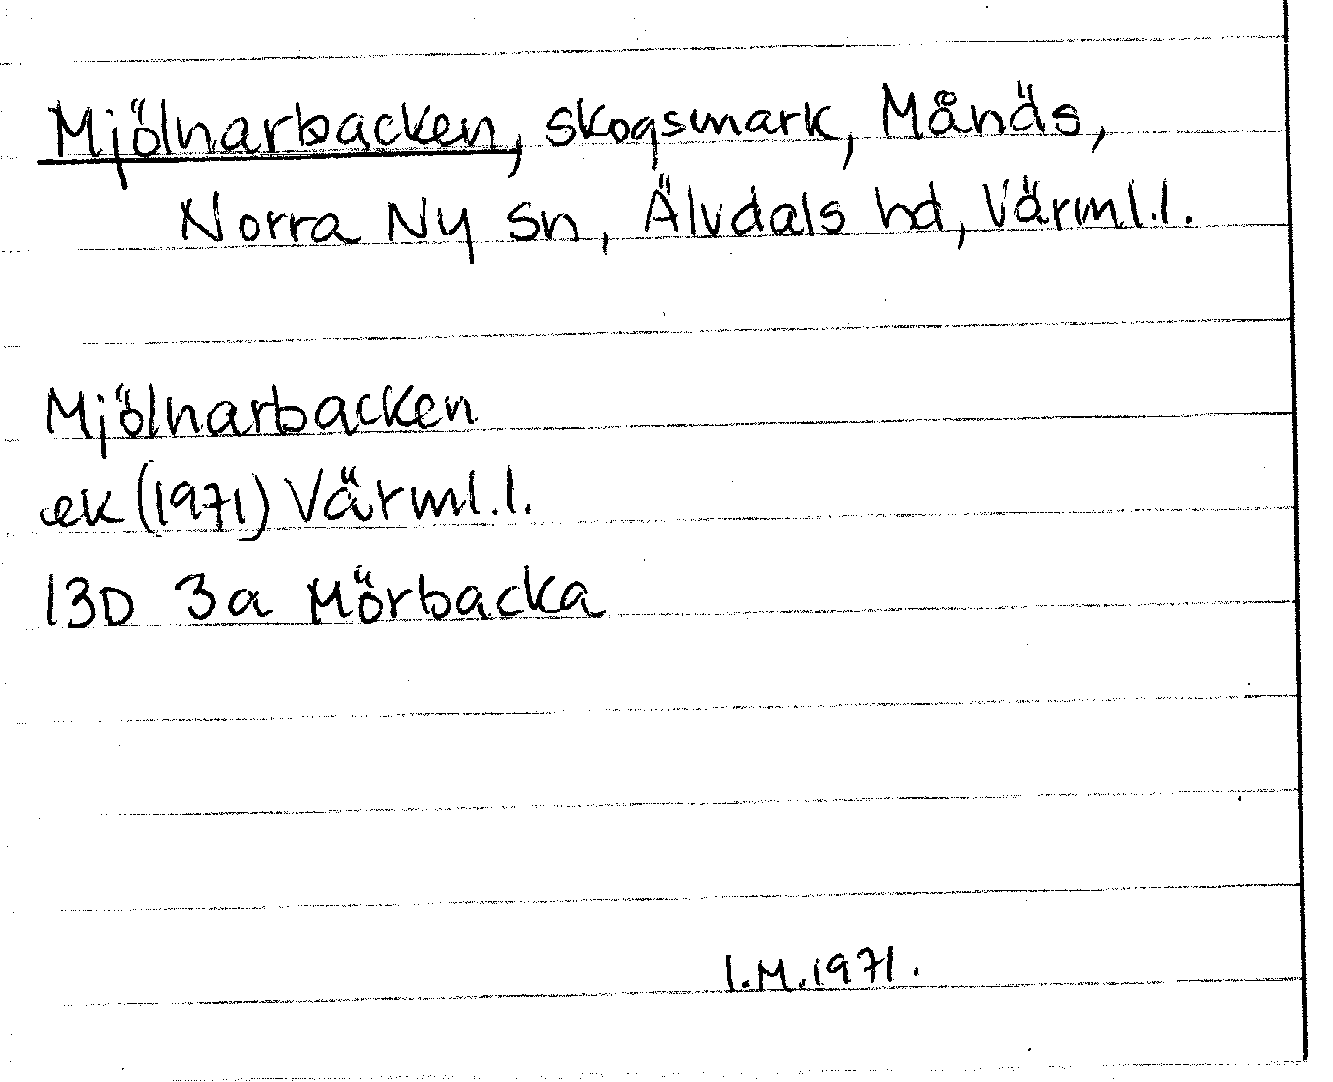 Mjölnarbacken, skogsmark, Månäs,
Norra Ny sn, Älvdals hd, Värml.l.
Mjölnarbacken
ek (1971) Värml.l.
13D 3a Mörbacka
I.M.1971.